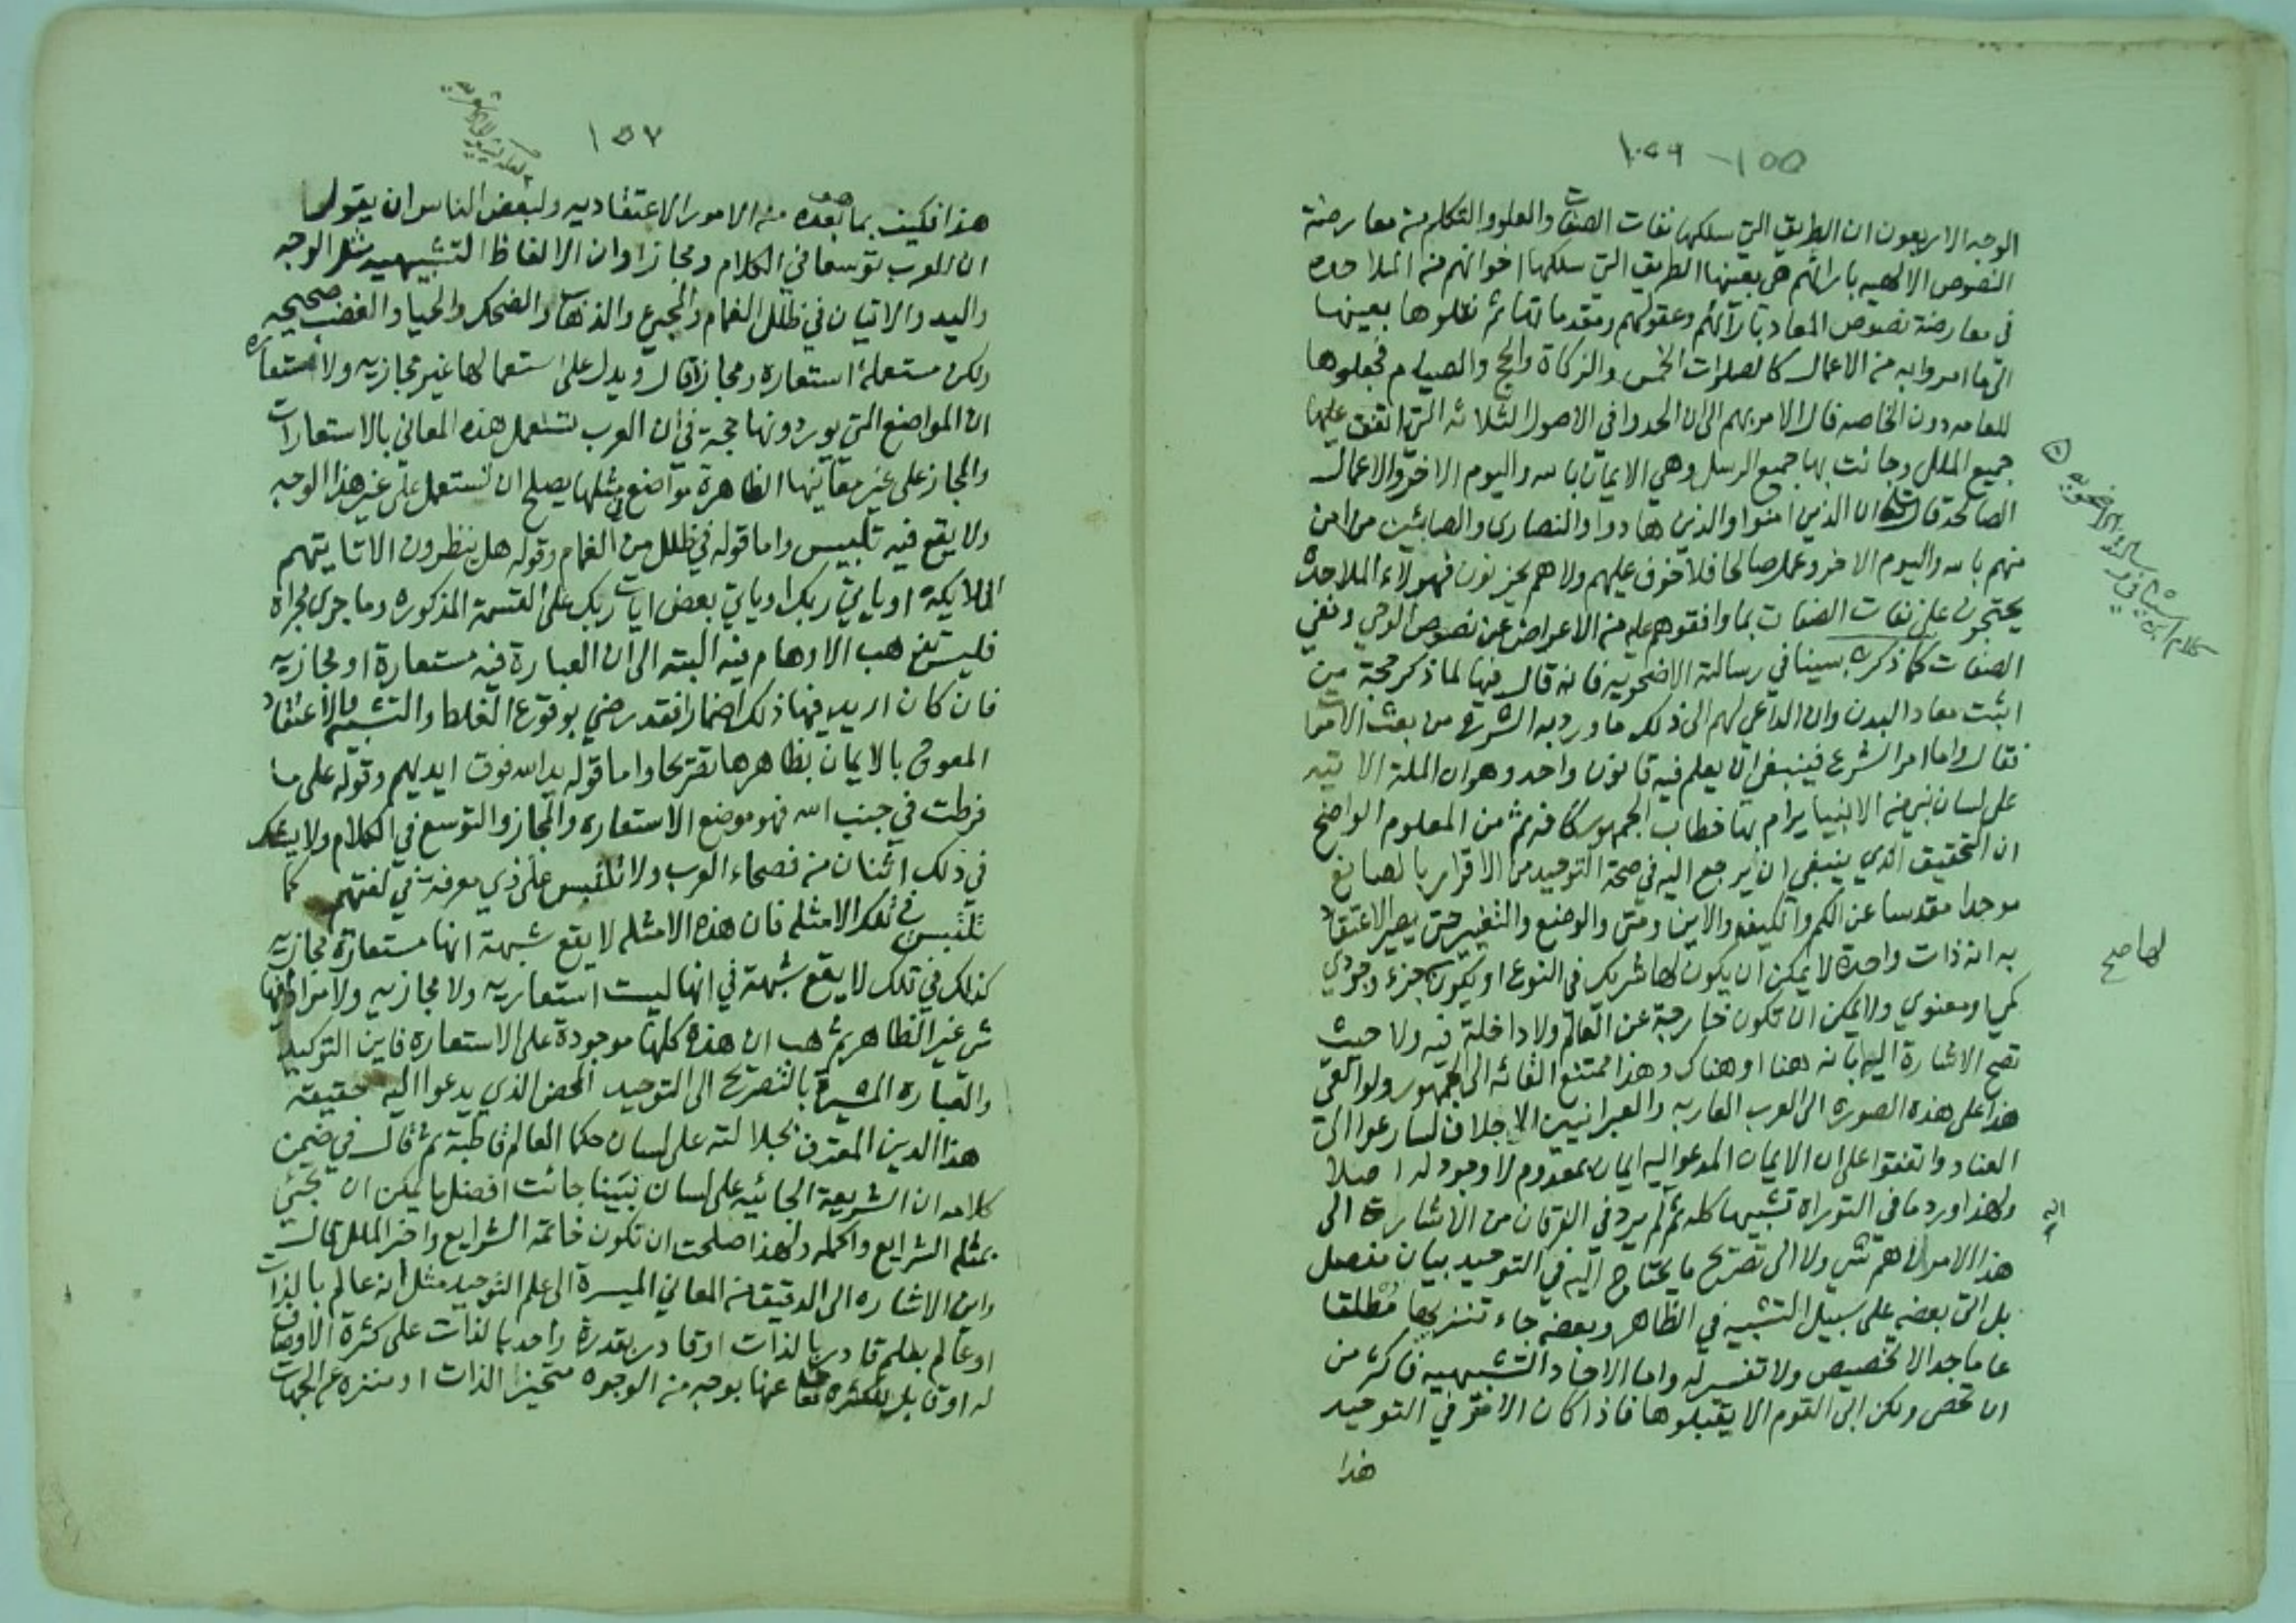 ١٥٥ - ١٥٦
الوجه الاربعون ان الطريق التي سلكها نفات الصفات والعلو والتكلم من معارضة
النصوص الالهيه بارائهم هي بعينها الطريق التي سلكها اخوانهم من الملاحده
في معارضة نصوص المعاد بآرائهم وعقولهم ومقدماتها ثم نقلوها بعينها
الى ما امروا به من الاعمال كالصلوات الخمس والزكاة والحج والصيام فجعلوها
للعامه دون الخاصه فال الامر بهم الى ان الحدوا في الاصول الثلاثه التي اتفق عليها
جميع الملل وجائت بها جميع الرسل وهي الايمان بالله واليوم الاخر والاعمال
الصالحة قال تعالى ان الذين امنوا والذين هادوا والنصارى والصابئين من امن
منهم بالله واليوم الاخر وعمل صالحا فلا خوف عليهم ولا هم يحزنون فهولاء الملاحدة
يحتجون على نفات الصفات بما وافقوهم عليه من الاعراض عن نصوص الوحي ونفي
الصفات كما ذكر ابن سينا في رسالته الاضحويه فانه قال فيها لما ذكر حجة من
اثبت معاد البدن وان الداعي لهم الى ذلك ما ورد به الشرع من بعث الاموات
فقال واما امر الشرع فينبغي ان يعلم فيه قانون واحد وهو ان الملة الاتيه
على لسان نبي من الانبيا يرام بها خطاب الجمهور كافه ثم من المعلوم الواضح
ان التحقيق الذي ينبغي ان يرجع اليه في صحة التوحيد من الاقرار بالصانع
موحدا مقدسا عن الكم والكيف والاين ومتى والوضع والتغير حتى يصير الاعتقاد
به انه ذات واحدة لا يمكن ان يكون لها شريك في النوع او يكون جزء وجودي
كمي او معنوي ولا يمكن ان تكون خارجة عن العالم ولا داخلة فيه ولا حيث
تصح الاشارة اليه بانه هنا او هناك وهذا ممتنع القائه الى الجمهور ولو القي
هذا على هذه الصوره الى العرب العاربه والعبرانيين الاجلاف لسارعوا الى
العناد واتفقوا على ان الايمان المدعو اليه ايمان بمعدوم لا وجود له اصلا
ولهذا ورد ما في التوراة تشبيها كله ثم لم يرد في الفرقان من الاشارة الى
هذا الامر الاهم شي ولا الى تصريح ما يحتاج اليه في التوحيد بيان مفصل
بل اتى بعضه على سبيل التشبيه في الظاهر وبعضه جاء تنزيها مطلقا
عاما جدا لا تخصيص ولا تفسير له واما الاخبار التشبيهيه فاكثر من
ان تحصى ولكن ابى القوم الا يقبلوها فاذا كان الامر في التوحيد
هذا
كلام ابن سينا في رسالته الاضحويه
لها صح
١٥٧
هذا فكيف بما بعده من الامور الاعتقاديه ولبعض الناس ان يقولوا
ان للعرب توسعا في الكلام ومجازا وان الالفاظ التشبيهيه مثل الوجه
واليد والاتيان في ظلل الغمام والمجيء والذهاب والضحك والحيا والغضب صحيحه
ولكن مستعملة استعارة ومجازا قال ويدل على استعمالها غير مجازيه ولا مستعاره
ان المواضع التي يوردونها حجة في ان العرب تستعمل هذه المعاني بالاستعارات
والمجاز على غير معانيها الظاهرة مواضع في مثلها يصلح ان تستعمل على غير هذا الوجه
ولا يقع فيه تلبيس واما قوله في ظلل من الغمام وقوله هل ينظرون الا تاتيهم
الملايكة او ياتي ربك او ياتي بعض ايات ربك على القسمة المذكوره وما جرى مجراه
فليس تذهب الاوهام فيه البته الى ان العبارة فيه مستعارة او مجازيه
فان كان اريد فيها ذلك اضمارا فقد رضي بوقوع الغلط والتشبه والاعتقاد
المعوج بالايمان بظاهرها تصريحا واما قوله يد الله فوق ايديهم وقوله على ما
فرطت في جنب الله فهو موضع الاستعاره والمجاز والتوسع في الكلام ولا يشك
في ذلك اثنان من فصحاء العرب ولا تلتبس على ذي معرفة في لغتهم كما
تلتبس في تلك الامثله فان هذه الامثله لا يقع شبهة انها مستعارة مجازيه
كذلك في تلك لا يقع شبهة في انها ليست استعاريه ولا مجازيه ولا مراد فيها
شي غير الظاهر ثم هب ان هذه كلها موجودة على الاستعاره فاين التوكيد
والعباره المشيرة بالتصريح الى التوحيد المحض الذي يدعوا اليه حقيقة
هذا الدين المعترف بجلالته على لسان حكما العالم قاطبة ثم قال في ضمن
كلامه ان الشريعة الجائيه على لسان نبينا جائت افضل ما يمكن ان تجئي
بمثله الشرايع واكمله ولهذا صلحت ان تكون خاتمة الشرايع واخر الملل قال
واين الاشاره الى الدقيق من المعاني الميسرة الى علم التوحيد مثل انه عالم بالذات
او عالم بعلم قادر بالذات او قادر بقدرة واحد بالذات على كثرة الاوصاف
له او قابل للكثره تعالى عنها بوجه من الوجوه متحيز الذات او منزه عن الجهات